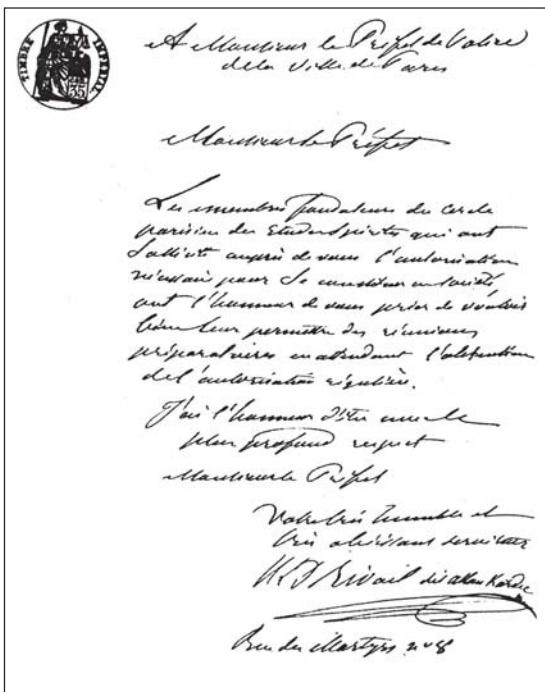 TIMBRE IMPERIAL
35
A Monsieur le Préfet de Police
de la Ville de Paris
Monsieur le Préfet
Les membres fondateurs du Cercle
parisien des Etudes Spirites qui ont
sollicité auprès de vous l'autorisation
nécessaire pour se constituer en société,
ont l'honneur de vous prier de vouloir
bien leur permettre des réunions
préparatoires en attendant l'obtention
de l'autorisation régulière.
J'ai l'honneur d'être avec le
plus profond respect
Monsieur le Préfet
Votre très humble et
très obéissant serviteur
H L D Rivail dit Allan Kardec
Rue des Martyrs n° 8